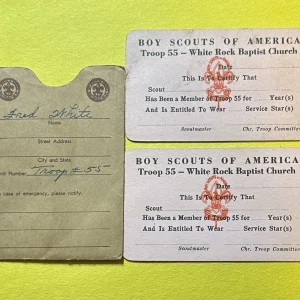 Fred White
Name
Street Address
City and State
Unit Number Troop # 55
case of emergency, please notify.
BOY SCOUTS OF AMERICA
Troop 55 — White Rock Baptist Church
Date
This Is To Certify That
Scout
Has Been a Member of Troop 55 for Year(s)
And Is Entitled To Wear Service Star(s)
Scoutmaster Chr. Troop Committee
BOY SCOUTS OF AMERICA
Troop 55 — White Rock Baptist Church
Date
This Is To Certify That
Scout
Has Been a Member of Troop 55 for Year(s)
And Is Entitled To Wear Service Star(s)
Scoutmaster Chr. Troop Committee